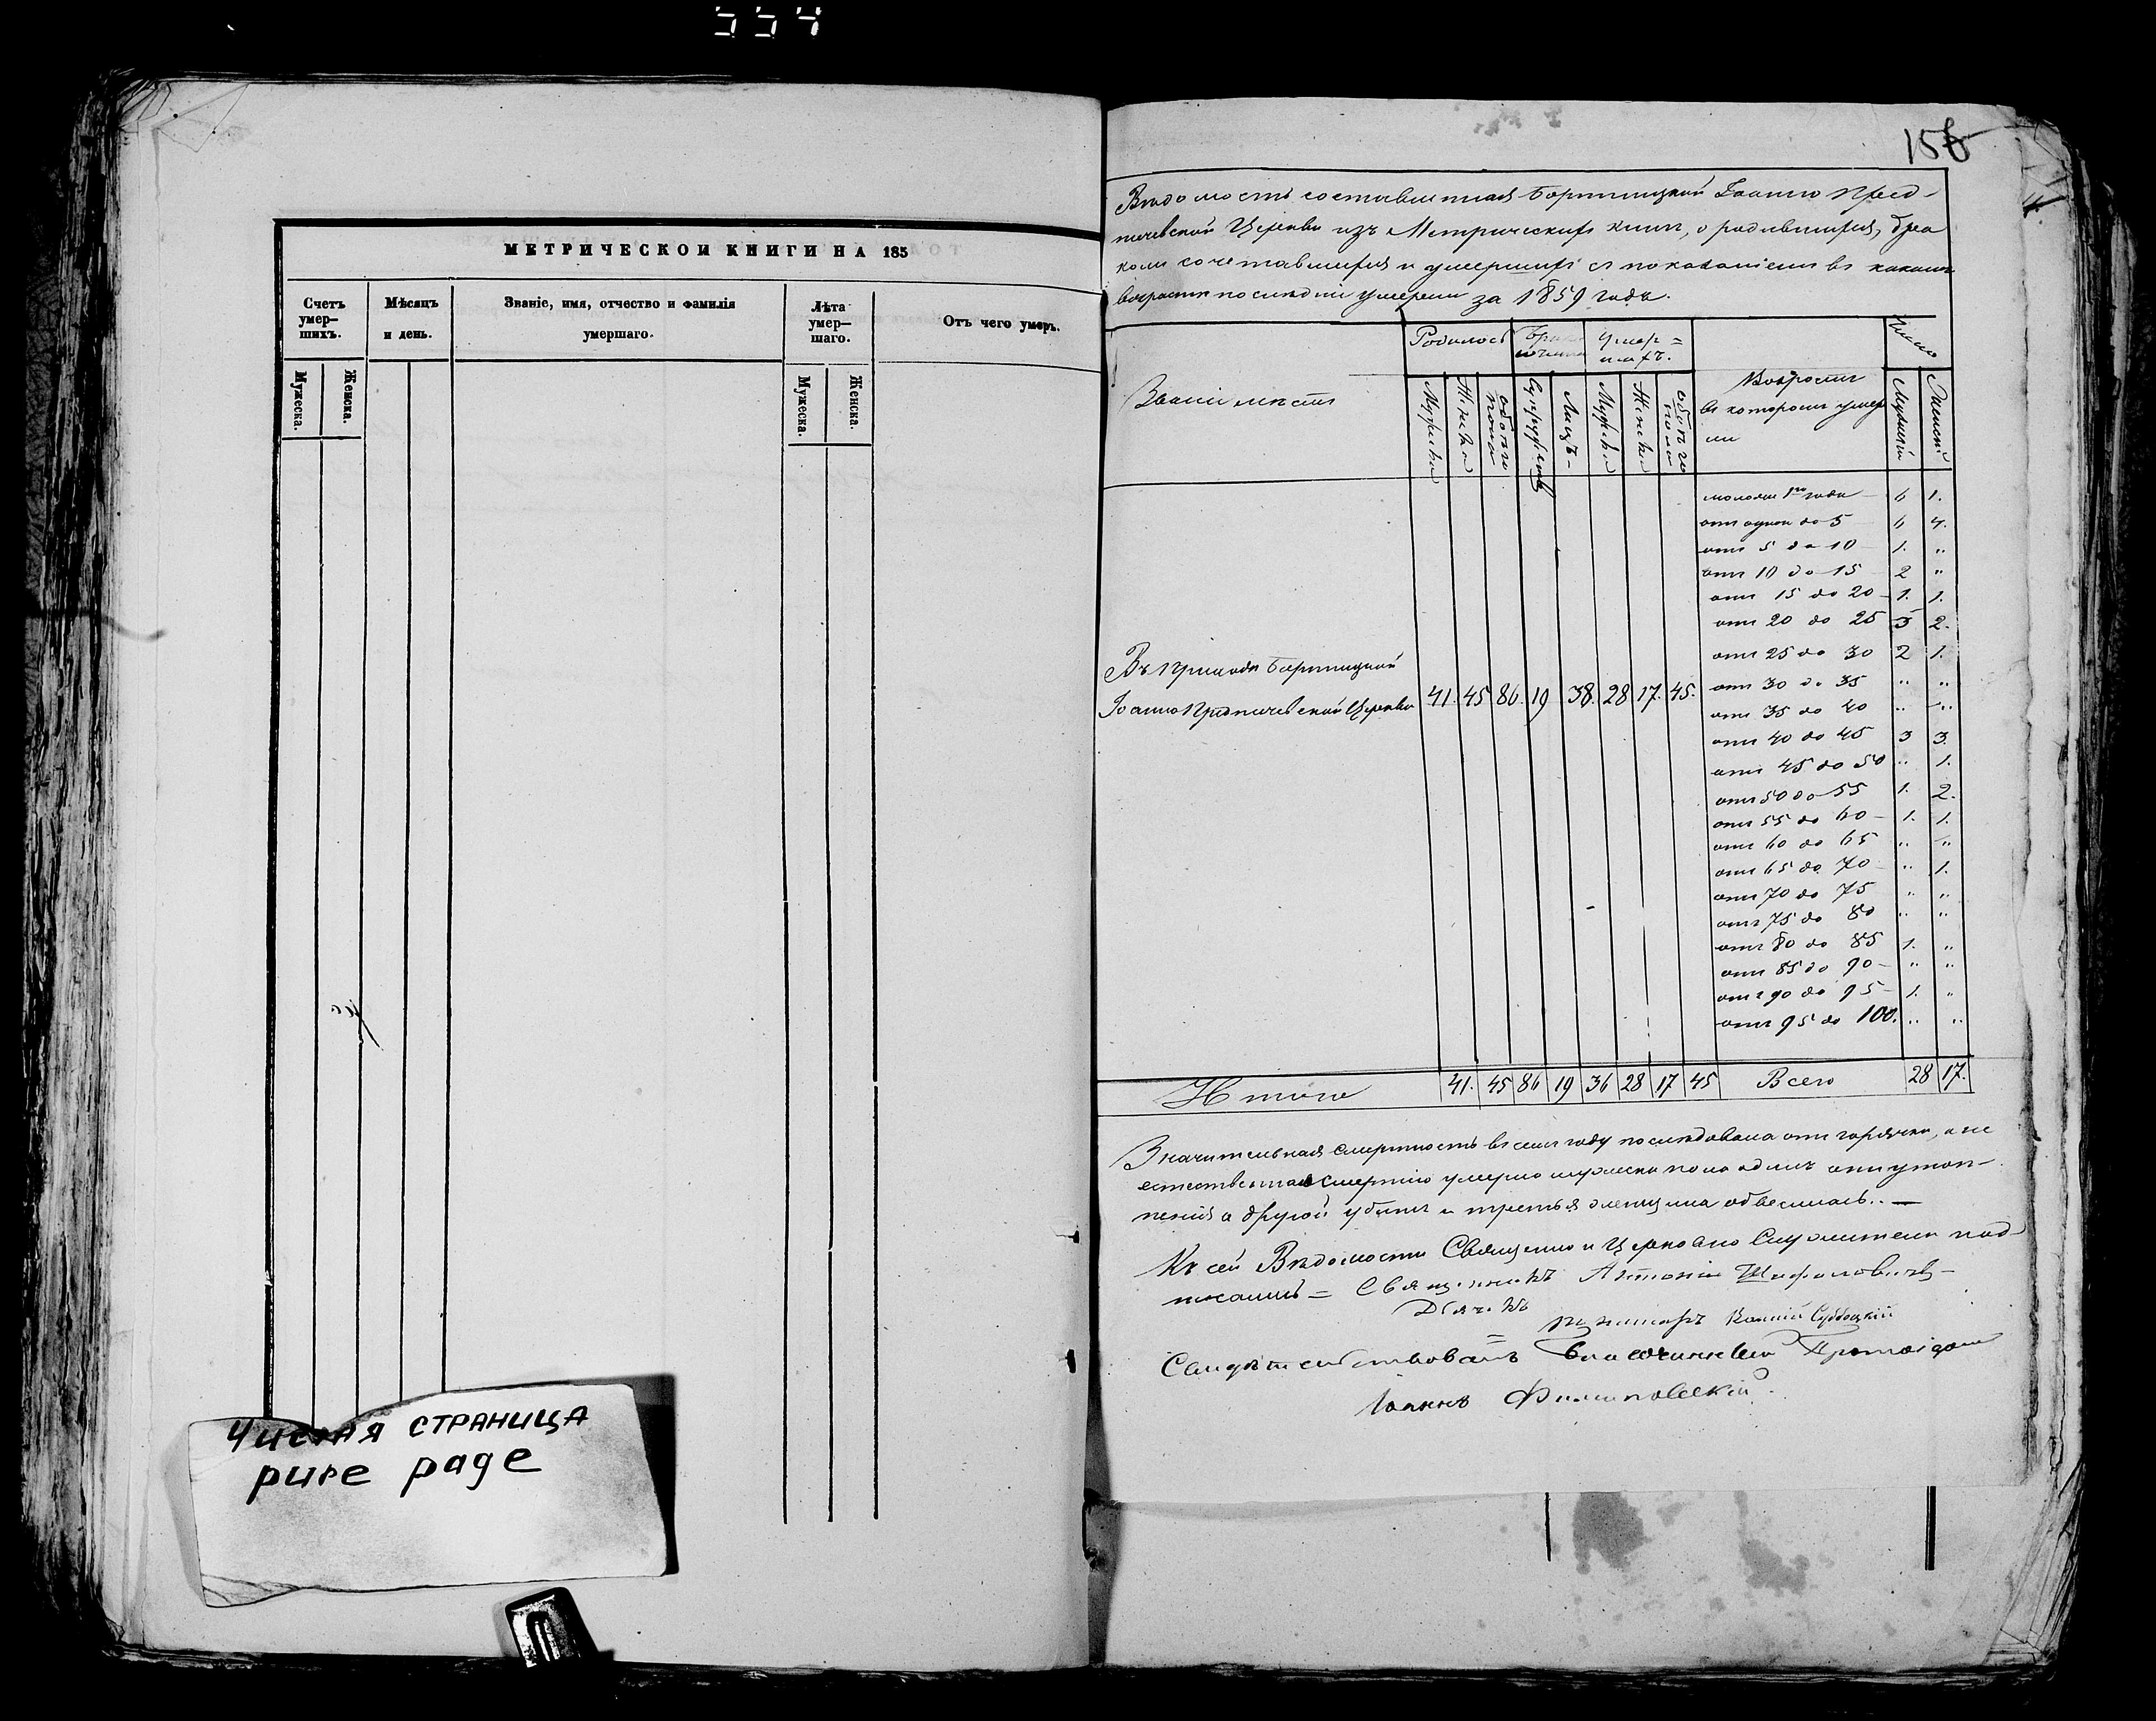 554
МЕТРИЧЕСКОЙ КНИГИ НА 185
Счетъ умер—шихъ.
Мѣсяцъ и день.
Званіе, имя, отчество и фамилія умершаго.
Лѣта умер—шаго.
Отъ чего умеръ.
Мужеска.
Женска.
Мужеска.
Женска.
Чистая страница
pure page
156
Вѣдомость составленная Бортницкой Іоанно Пред-
течевской Церкви изъ Метрическихъ книгъ, о родившихся, бра
комъ сочетавшихся и умершихъ съ показаніемъ въ какомъ
возрастѣ послѣдніи умерли за 1859 годъ.
Званіе мѣстъ
Родилось
Умер=шихъ.
Число
Мужеска
Женска
обоего пола
Супружествъ
Лицъ-
Мужеска
Женска
обоего пола
Возрастъ
въ которомъ умер
ли
молож 1го года 6 1.
отъ одного до 5 6 4.
отъ 5 до 10 1. "
отъ 10 до 15 2 "
отъ 15 до 20 - 1. 1.
отъ 20 до 25 5 2.
отъ 25 до 30 2 1.
отъ 30 до 35 " "
отъ 35 до 40 " "
отъ 40 до 45 3 3.
отъ 45 до 50 " 1.
отъ 50 до 55 1. 2.
отъ 55 до 60 - 1. 1.
отъ 60 до 65 " "
отъ 65 до 70 " 1.
отъ 70 до 75 " "
отъ 75 до 80 " "
отъ 80 до 85 1. "
отъ 85 до 90 - " "
отъ 90 до 95 - 1. "
отъ 95 до 100. " "
Въ приходѣ Бортницкой
Іоанно Предтечевской Церкви 41. 45 86. 19 38. 28 17. 45.
Итого 41. 45 86 19 36 28 17 45 Всего 28 17.
Значительная смертность въ семъ году послѣдовала отъ горячки, а не
естественною смертію умерло мужеска пола одинъ отъ утоп-
ленія а другой убитъ и третья женщина обвесилась. —
Къ сей Вѣдомости Священно и Церковно Служители под-
писались = Священникъ Антоній
Дьячекъ
Пономарь
Свидѣтельствовалъ Благочинный Протоіерей
Іоаннъ Филиповскій.